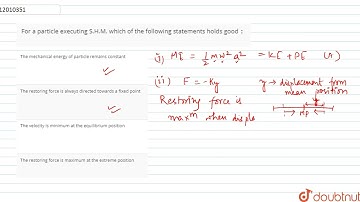 12010351
For a particle executing S.H.M. which of the following statements holds good :
The mechanical energy of particle remains constant
The restoring force is always directed towards a fixed point
The velocity is minimum at the equilibrium position
The restoring force is maximum at the extreme position
(i) ME = 1/2 mw²a² = KE + PE
(ii) F = -Ky y → displacement from mean position
Restoring force is
maxᵐ when displa
doubtnut